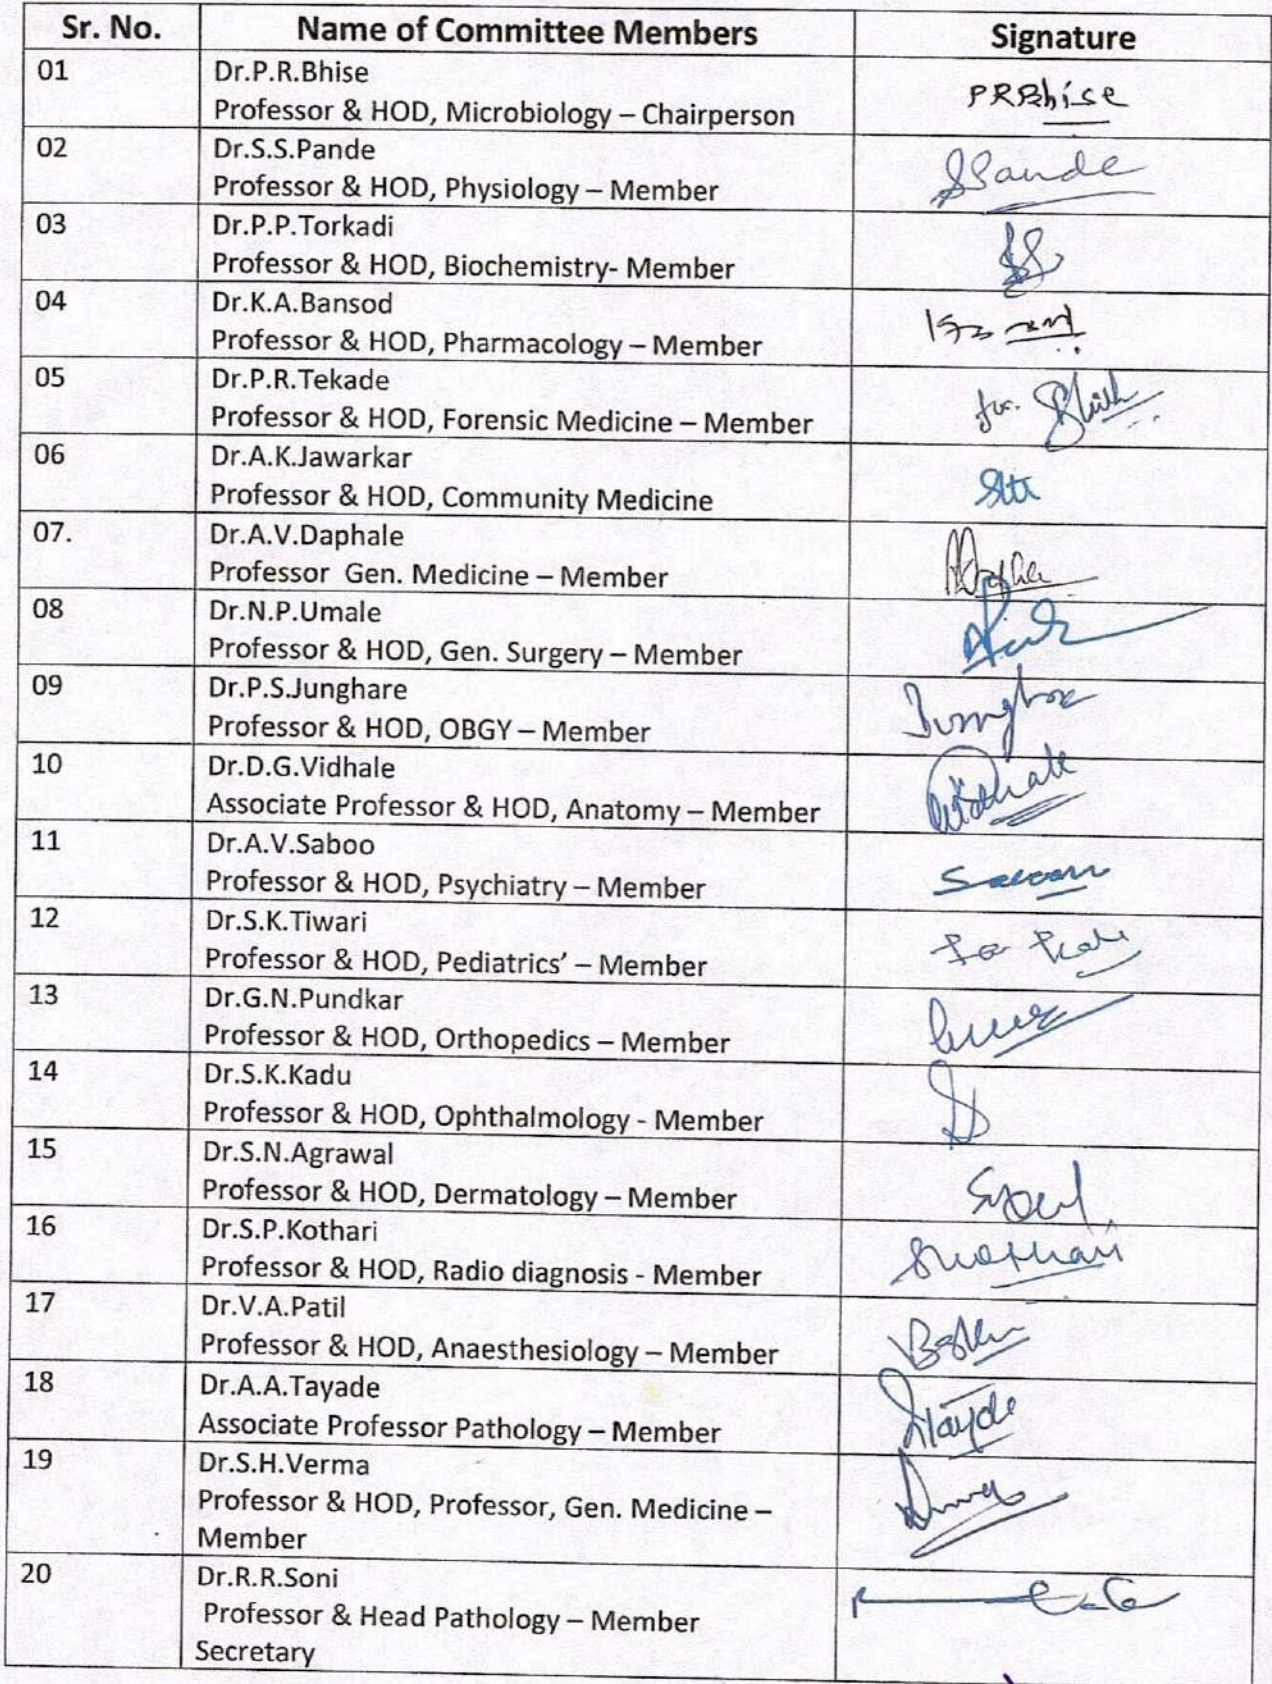 Sr. No. Name of Committee Members Signature
01 Dr.P.R.Bhise
Professor & HOD, Microbiology – Chairperson PRBhise
02 Dr.S.S.Pande
Professor & HOD, Physiology – Member SPande
03 Dr.P.P.Torkadi
Professor & HOD, Biochemistry- Member
04 Dr.K.A.Bansod
Professor & HOD, Pharmacology – Member
05 Dr.P.R.Tekade
Professor & HOD, Forensic Medicine – Member for.
06 Dr.A.K.Jawarkar
Professor & HOD, Community Medicine
07. Dr.A.V.Daphale
Professor Gen. Medicine – Member
08 Dr.N.P.Umale
Professor & HOD, Gen. Surgery – Member
09 Dr.P.S.Junghare
Professor & HOD, OBGY – Member
10 Dr.D.G.Vidhale
Associate Professor & HOD, Anatomy – Member
11 Dr.A.V.Saboo
Professor & HOD, Psychiatry – Member
12 Dr.S.K.Tiwari
Professor & HOD, Pediatrics’ – Member For
13 Dr.G.N.Pundkar
Professor & HOD, Orthopedics – Member
14 Dr.S.K.Kadu
Professor & HOD, Ophthalmology - Member
15 Dr.S.N.Agrawal
Professor & HOD, Dermatology – Member
16 Dr.S.P.Kothari
Professor & HOD, Radio diagnosis - Member Skothari
17 Dr.V.A.Patil
Professor & HOD, Anaesthesiology – Member
18 Dr.A.A.Tayade
Associate Professor Pathology – Member
19 Dr.S.H.Verma
Professor & HOD, Professor, Gen. Medicine –
Member
20 Dr.R.R.Soni
Professor & Head Pathology – Member
Secretary